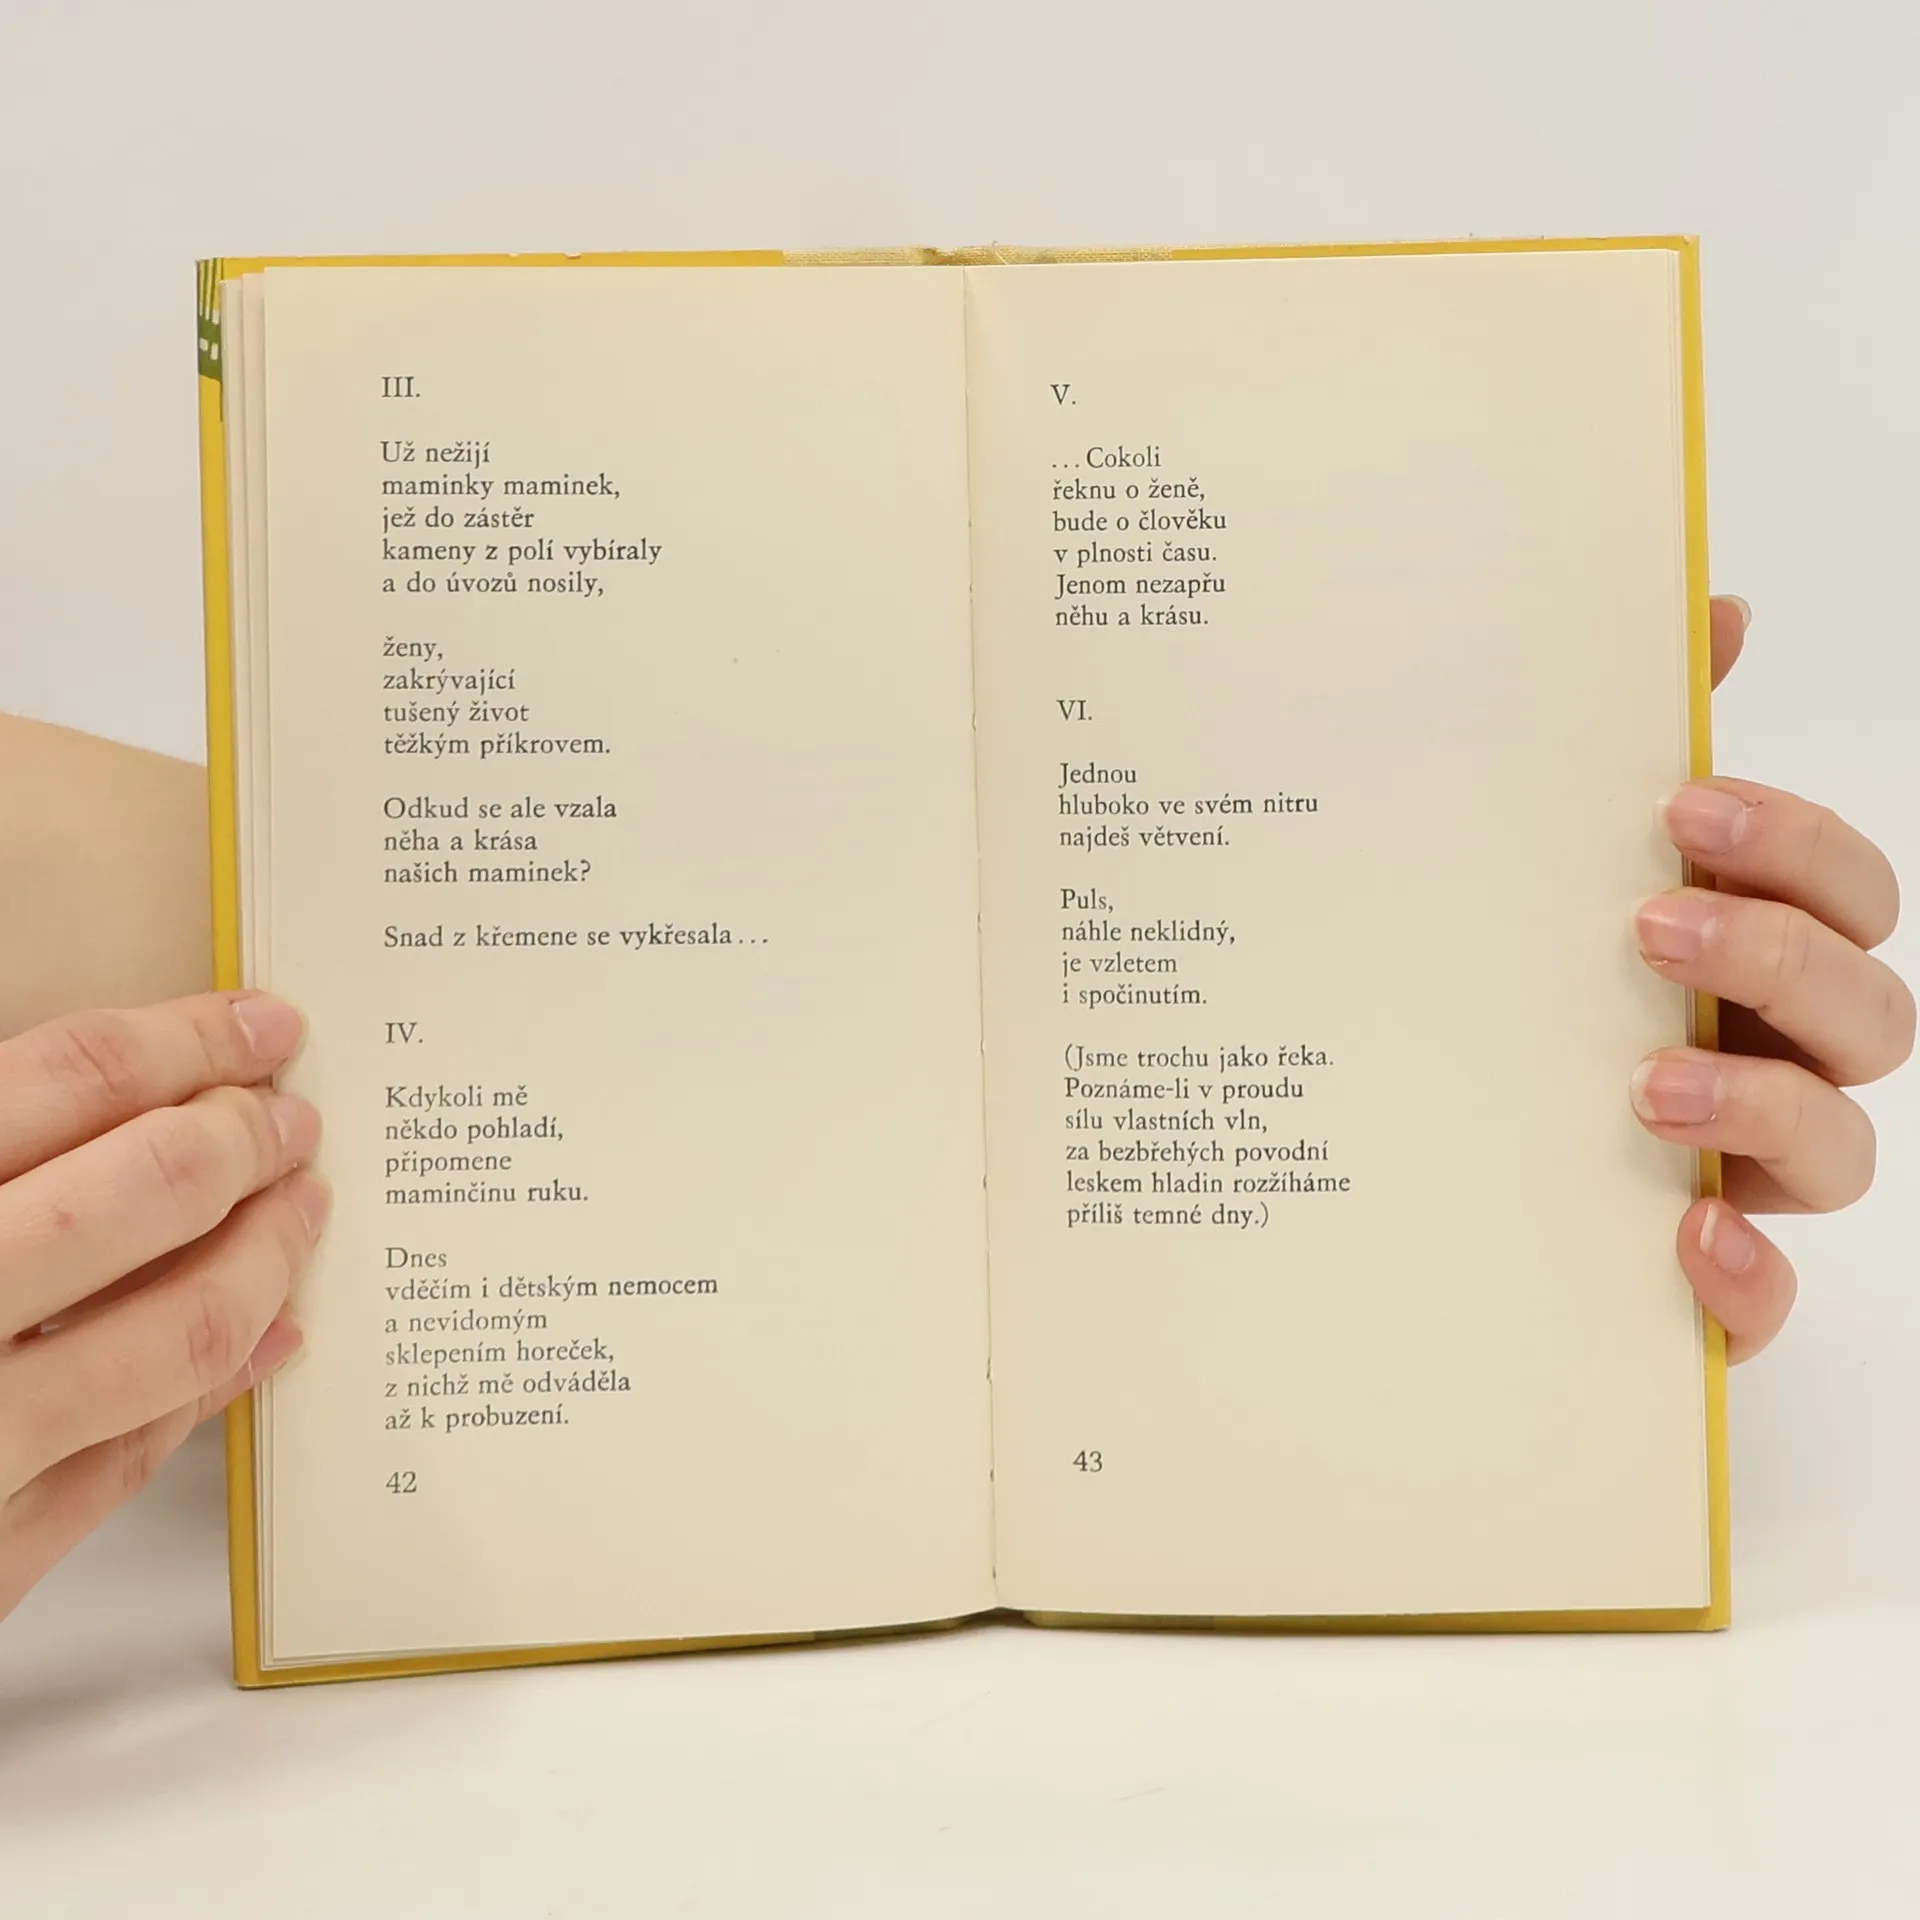 III.
Už nežijí
maminky maminek,
jež do zástěr
kameny z polí vybíraly
a do úvozů nosily,
ženy,
zakrývající
tušený život
těžkým příkrovem.
Odkud se ale vzala
něha a krása
našich maminek?
Snad z křemene se vykřesala...
IV.
Kdykoli mě
někdo pohladí,
připomene
maminčinu ruku.
Dnes
vděčím i dětským nemocem
a nevidomým
sklepením horeček,
z nichž mě odváděla
až k probuzení.
42
V.
...Cokoli
řeknu o ženě,
bude o člověku
v plnosti času.
Jenom nezapřu
něhu a krásu.
VI.
Jednou
hluboko ve svém nitru
najdeš větvení.
Puls,
náhle neklidný,
je vzletem
i spočinutím.
(Jsme trochu jako řeka.
Poznáme-li v proudu
sílu vlastních vln,
za bezbřehých povodní
leskem hladin rozžíháme
příliš temné dny.)
43